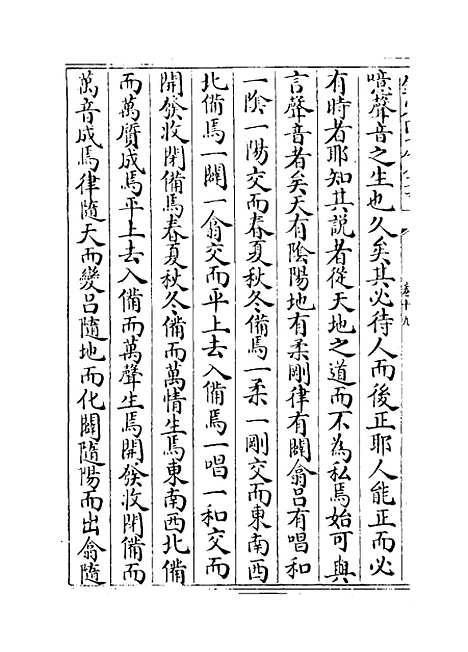 卷十九
噫聲音之生也久矣其必待人而後正耶人能正而必
有時者耶知其説者從天地之道而不為私焉始可與
言聲音者矣天有陰陽地有柔剛律有闢翕吕有唱和
一陰一陽交而春夏秋冬備焉一柔一剛交而東南西
北備焉一闢一翕交而平上去入備焉一唱一和交而
開發收閉備焉春夏秋冬備而萬情生焉東南西北備
而萬質成焉平上去入備而萬聲生焉開發收閉備而
萬音成焉律隨天而變吕隨地而化闢隨陽而出翕隨